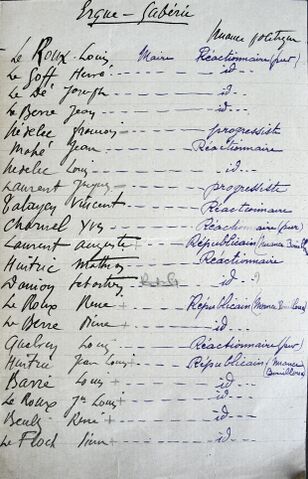 Ergué-Gabéric
nuance politique
Le Roux Louis Maire Réactionnaire (pur)
Le Goff Hervé id
Le Dé Joseph id
Le Berre Jean id
Nédélec François progressiste
Mahé Jean Réactionnaire
Nédélec Louis id
Laurent progressiste
Talayec Vincent Réactionnaire
Charuel Yves Réactionnaire (pur)
Laurent Auguste + Républicain (nuance
Huitric Mathias Réactionnaire
id ?
Le Roux René + Républicain (nuance
Le Berre Pierre + id
Louis Réactionnaire (pur)
Huitric Jean Louis + Républicain (nuance
Barré Louis + id
Le Roux Jn Louis + id
René + id
Le Floch + id